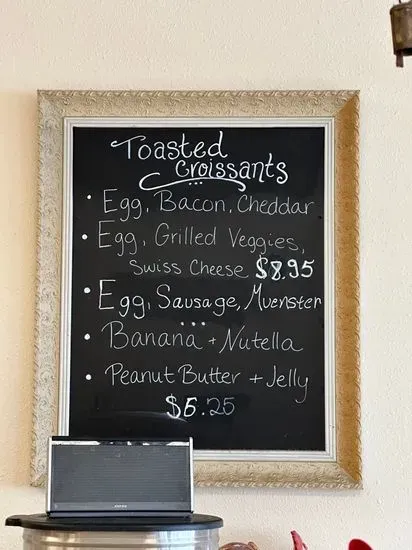 Toasted
Croissants
• Egg, Bacon, Cheddar
• Egg, Grilled Veggies,
Swiss Cheese $8.95
• Egg, Sausage, Muenster
• Banana + Nutella
• Peanut Butter + Jelly
$6.25
BOSE